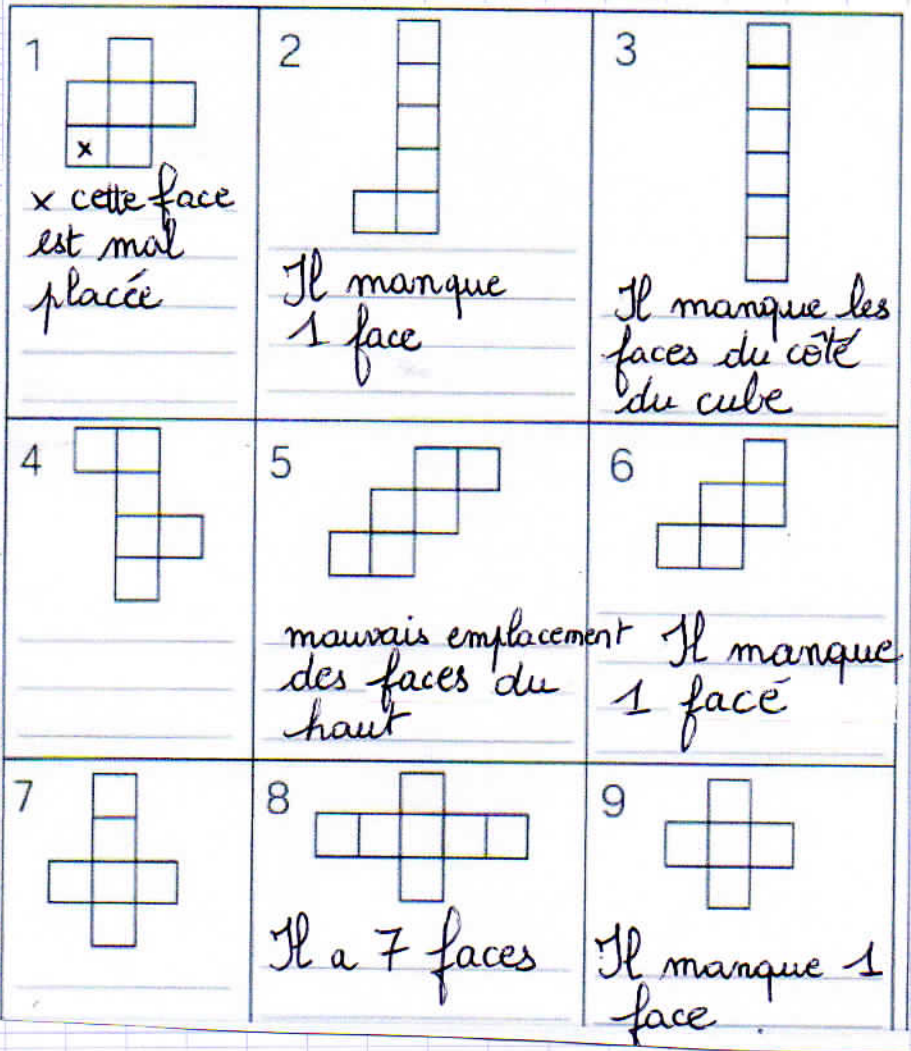 1
x
x cette face
est mal
placée
2
Il manque
1 face
3
Il manque les
faces du côté
du cube
4
5
mauvais emplacement
des faces du
haut
6
Il manque
1 facé
7
8
Il a 7 faces
9
Il manque 1
face